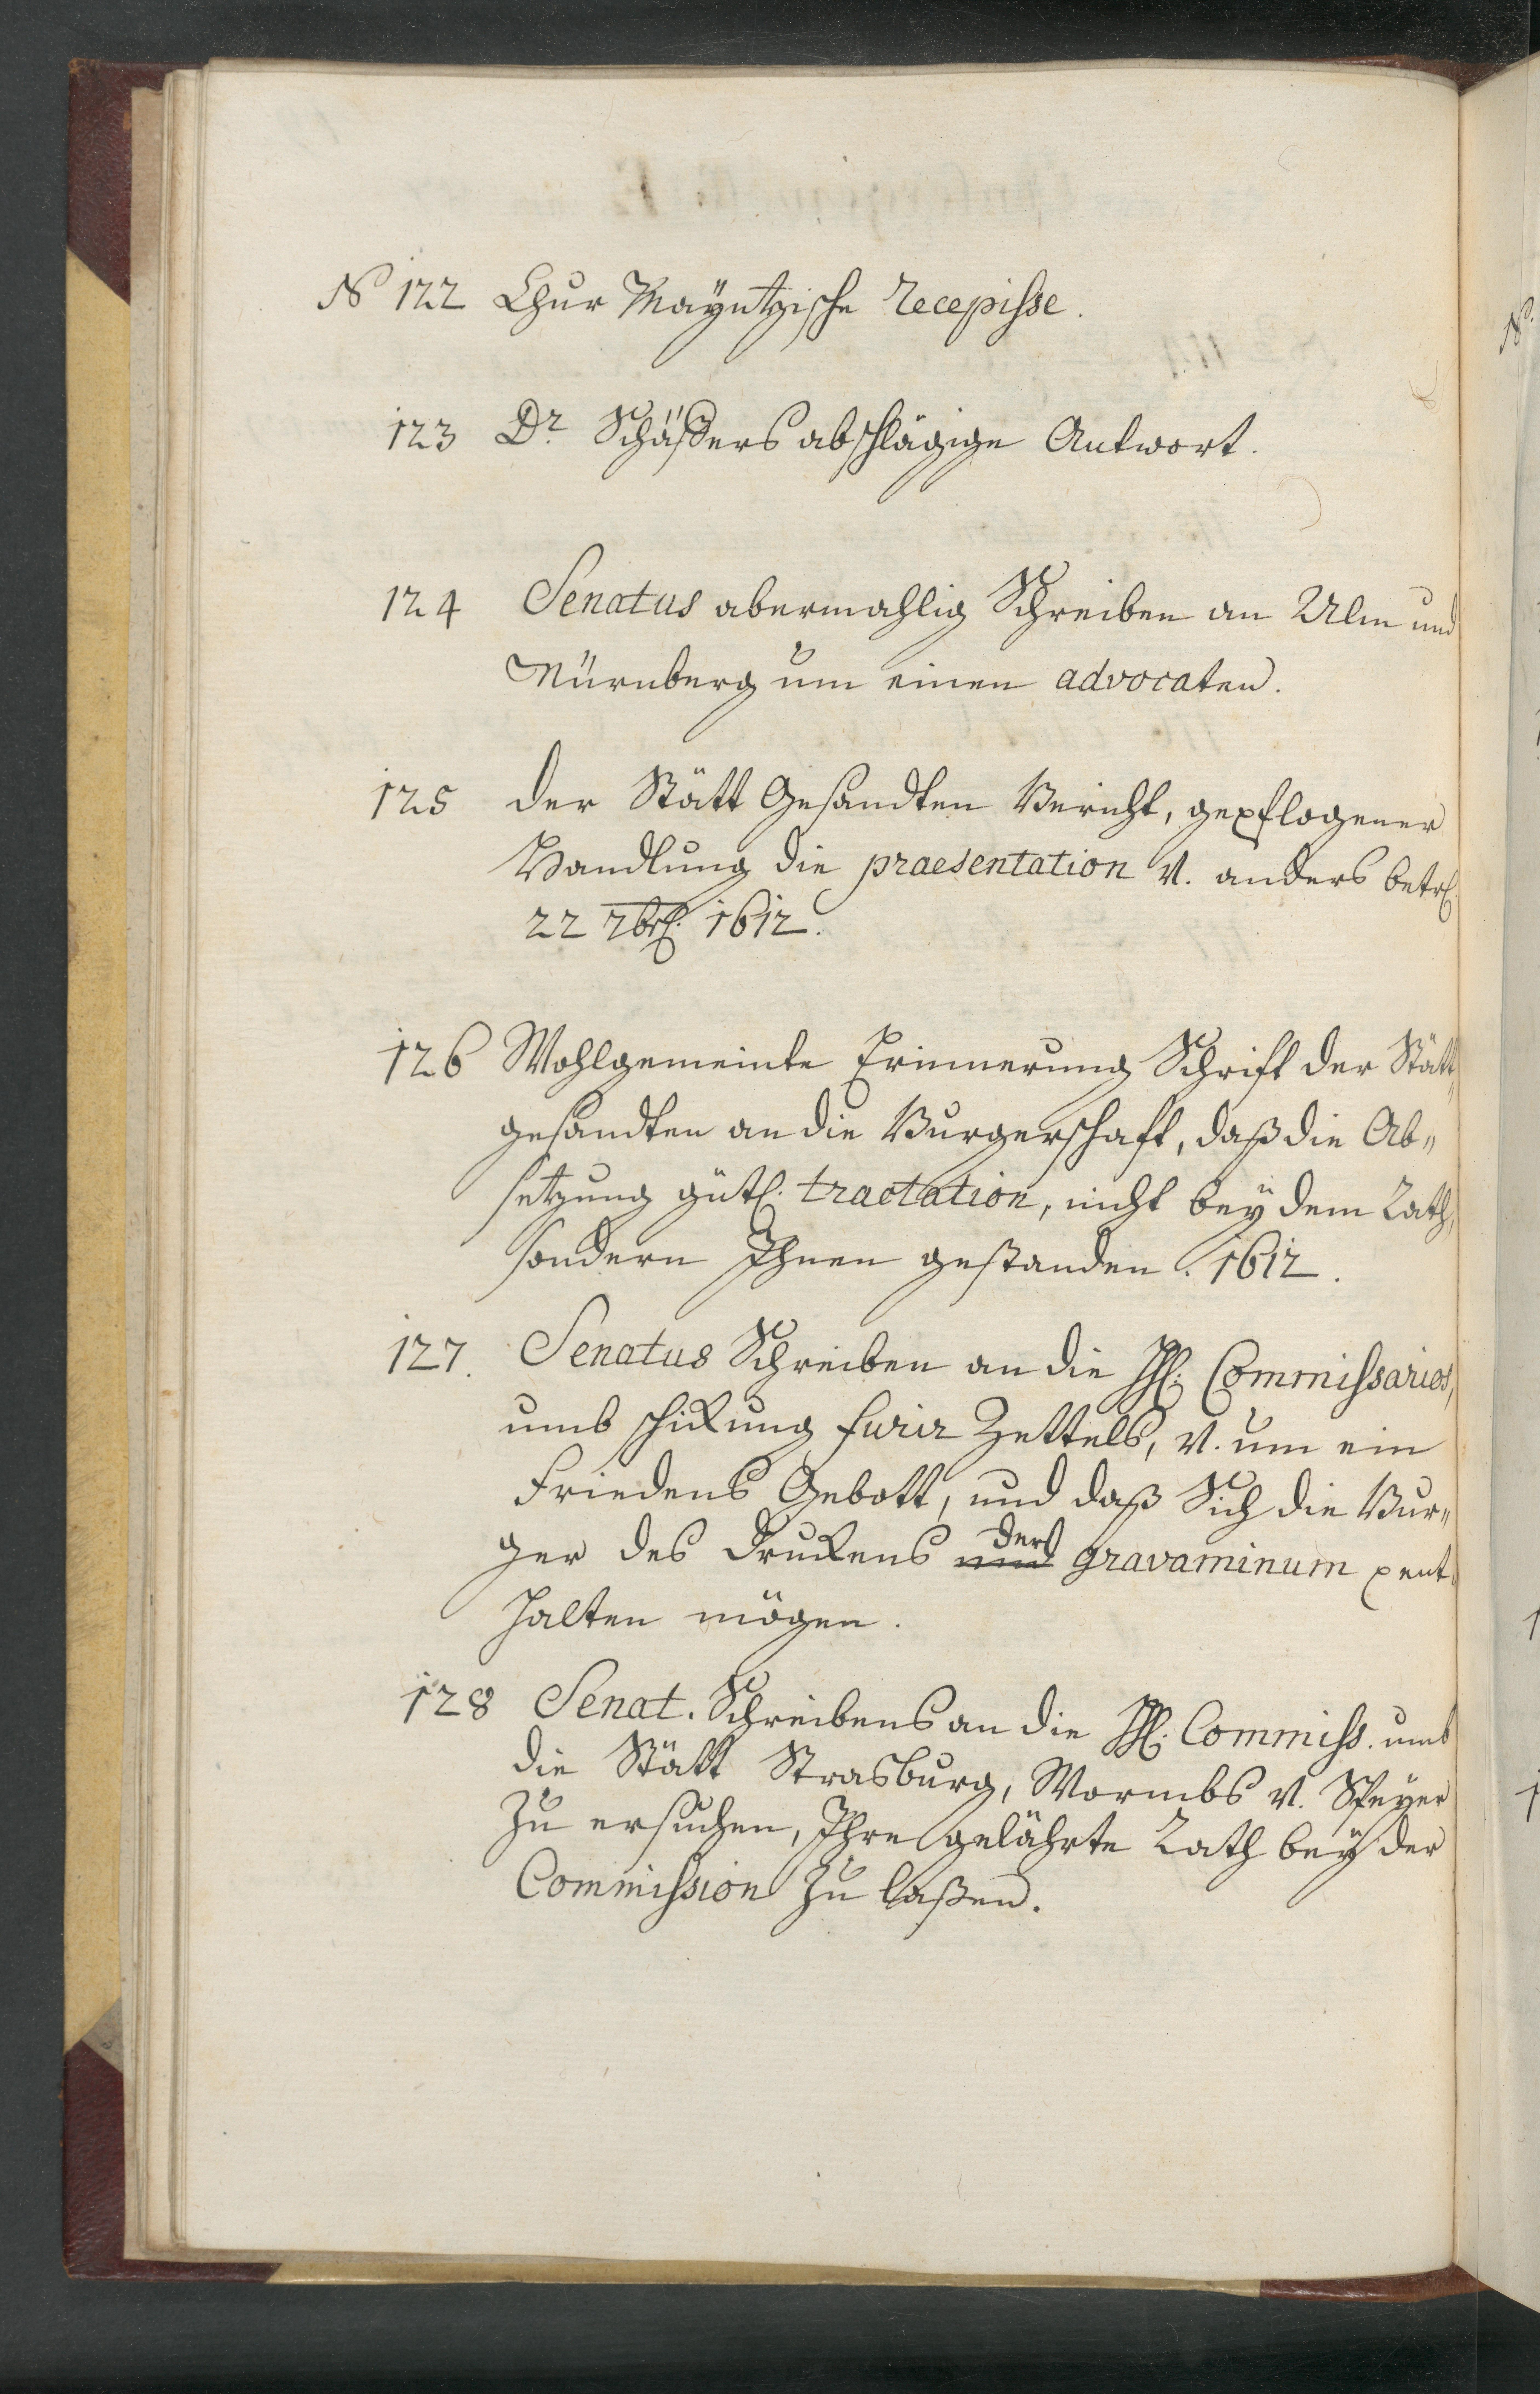 N 122 Chur Mayntzische recepisse.
123 Dr. Schässers abschlägige Antwort.
124 Senatus abermahlig Schreiben an Ulm und
Nürnberg um einen advocaten.
125 der Stätt Gesandten Bericht, gepflogener
Handlung die praesentation v. anders betr.
22 7br. 1612.
126 Wohlgemeinte Erinnerung Schrift der Stätt„
gesandten an die Burgerschaft, daß die Ab„
setzung gütl. tractation, nicht bey dem Rath,
sondern Ihnen gestanden. 1612.
127. Senatus Schreiben an die HH. Commissarios,
umb schikung furir Zettels, v. um ein
Friedens Gebott, und daß Sich die Bur„
ger des Drukens der gravaminum ent„
halten mögen.
128 Senat. Schreibens an die HH. Commiss. umb
die Stätt Strasburg, Wormbs v. Speyer
zu ersuchen, Ihre gelährte Rath bey der
Commission zu laßen.